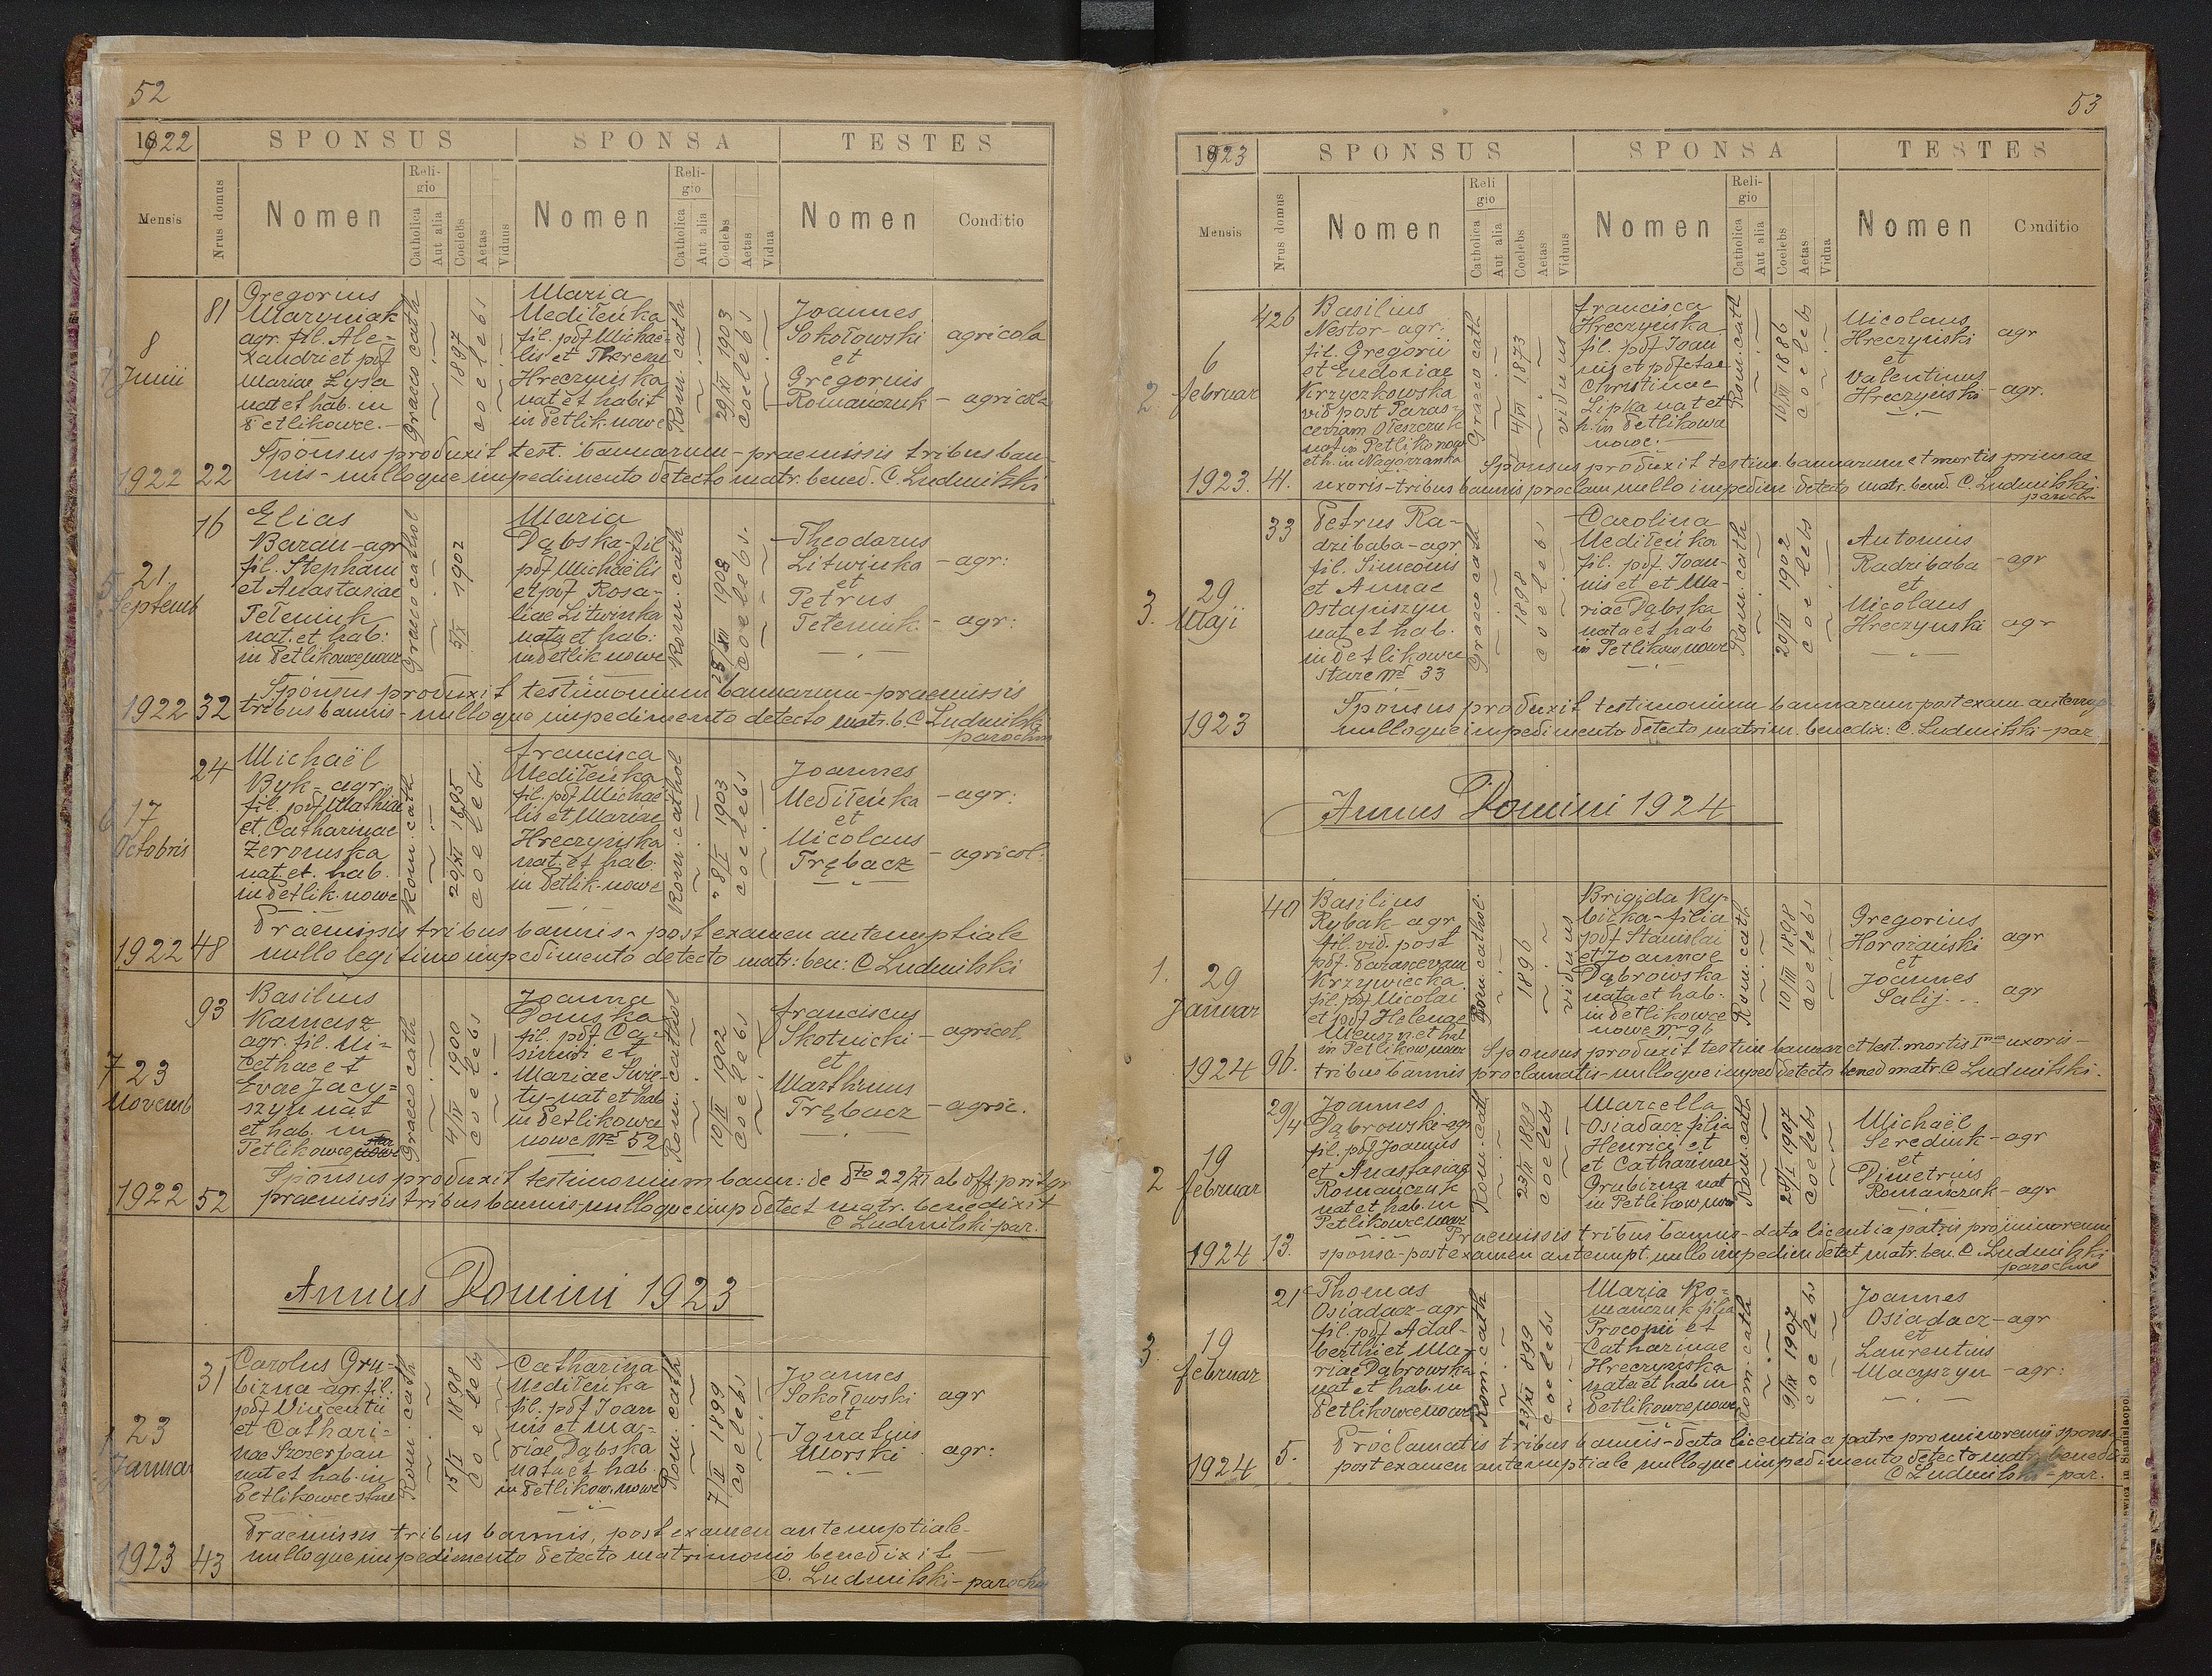 52
1922
SPONSUS
SPONSA
TESTES
Mensis
Nrus domus
Nomen
Religio
Catholica
Aut alia
Coelebs
Aetas
Viduus
Nomen
Religio
Catholica
Aut alia
Coelebs
Aetas
Vidua
Nomen
Conditio
8
Junii
1922
81
22
Gregorius
Maryniak
agr. fil. Ale=
xandri et pdf
Mariae Lysa
nat et hab. in
Petlikowce.-
Graeco cath
1897
coelebs
Maria
Medileńka
fil. pdf Michae-
lis et Theresiae
Hreczyńska
nat et habit
in Petlik. nowe
Rom. cath
29/XI 1903
coelebs
Joannes
Sokołowski
et
Gregorius
Romańczuk
agricola
agricola
Sponsus produxit test. bannarum - praemissis tribus ban-
nis - nulloque impedimento detecto matr. bened. C. Ludmilski
21
Septemb
1922
16
32
Elias
Baran - agr
fil. Stephani
et Anastasiae
Peteniuk
nat. et hab:
in Petlikowce nowe
Graeco cathol
5/IX 1902
coelebs
Maria
Dąbska - fil
pdf Michaëlis
et pdf Rosa-
liae Litwinka
nata et hab:
in Petlik nowe
Rom. cath
25/XII 1903
coelebs
Theodorus
Litwinka
et
Petrus
Peteniuk
agr:
agr:
Sponsus produxit testimonium bannarum - praemissis
tribus bannis - nulloque impedimento detecto matr. b. C. Ludmilski
parochus
17
Octobris
1922
24
48
Michaël
Byk - agr.
fil. pdf Mathiae
et Catharinae
Zeromska
nat. et. hab.
in Petlik. nowe
Rom. cath
20/XI 1895
coelebs
Francisca
Medileńka
fil. pdf Michae
lis et Mariae
Hreczyńska
nat. et hab.
in Petlik. nowe
Rom. cathol
8/I 1903
coelebs
Joannes
Medileńka
et
Nicolaus
Trębacz
agr:
agricol:
Praemissis tribus bannis - post examen antenuptiale
nullo legitimo impedimento detecto matr: ben: C Ludmilski
7
23
Novemb
1922
93
52
Basilius
Karnasz
agr. fil. Ni=
cethae et
Evae Jacy=
szyn nat
et hab. in
Petlikowce nowe
Graeco cath
4/IV 1900
coelebs
Joanna
Domska
fil. pdf Ca-
simiri et
Mariae Swie-
ty - nat et hab
in Petlikowce
nowe No 52
Rom. cathol
10/II 1902
coelebs
Franciscus
Skotnicki
et
Marthinus
Trębacz
agricol.
agric.
Sponsus produxit testimonium bann: de dto 22/XI ab off.
praemissis tribus bannis - nulloque imp detect matr. benedixit
C Ludmilski - par.
Annus Domini 1923
23
Januar
1923
31
43
Carolus Gru=
bizna - agr. fil.
pdf Vincentii
et Cathari=
nae Szczerban
nat et hab. in
Petlikowce stare
Rom. cath
15/I 1898
coelebs
Catharina
Medileńka
fil. pdf Joan
nis et Ma=
riae Dąbska
nata et hab
in Petlikow. nowe
Rom. cath
7/II 1899
coelebs
Joannes
Sokołowski
et
Ignatius
Morski
agr
agr:
Praemissis tribus bannis, post examen antenuptiale
nulloque impedimento detecto matrimonio benedixit -
C. Ludmilski - parochus
53
1923
SPONSUS
SPONSA
TESTES
Mensis
Nrus domus
Nomen
Religio
Catholica
Aut alia
Coelebs
Aetas
Viduus
Nomen
Religio
Catholica
Aut alia
Coelebs
Aetas
Vidua
Nomen
Conditio
2
6
Februar
1923.
426
41.
Basilius
Nestor - agr.
fil. Gregorii
et Eudoxiae
Krzyczkowska
vid post Paras-
ceviam Oleszczuk
nat in Petliko now
et h. in Nagórzanka
Graeco cath
4/VI 1873
viduus
Francisca
Hreczyńska
fil. pdf Joan
nis et pdfctae
Christinae
Lipka nat et
h. in Petlikowce
nowe.
Rom. cath
10/III 1886
coelebs
Nicolaus
Hreczyński
et
Valentinus
Hreczyński
agr
agr.
Sponsus produxit testim. bannarum et mortis primae
uxoris - tribus bannis proclam nullo impedim detecto matr. bened. C. Ludmilski
paroch
3.
29
Maji
1923
33
Petrus Ra-
dzibaba - agr
fil. Simeonis
et Annae
Ostapiszyn
nat et hab.
in Petlikowce
stare No 33
Graeco cath
1898
coelebs
Carolina
Medileńka
fil. pdf. Joan-
nis et et Ma-
riae Dąbska
nata et hab
in Petlikow nowe
Rom. cath
20/II 1902
coelebs
Antonius
Radzibaba
et
Nicolaus
Hreczyński
agr
agr
Sponsus produxit testimonium bannarum post exam antenup
nulloque impedimento detecto matrim. benedix: C. Ludmilski - par
Annus Domini 1924
1.
29
Januar
1924
40
96.
Basilius
Rybak agr
fil. vid. post
pdf. Parascevam
Krzywiecka
fil. pdf Nicolai
et pdf Helenae
in Petlikow nowe
Rom. cathol.
1896
viduus
Brigida Ry-
bicka - filia
pdf Stanislai
et Joannae
Dąbrowska
nata et hab.
in Petlikowce
nowe No 96
Rom. cath
10/III 1898
coelebs
Gregorius
Horożański
et
Joannes
Salij
agr
agr
Sponsus produxit testim bannar et test. mortis Imae uxoris -
tribus bannis proclamatis - nulloque imped detecto bened matr C Ludmilski.
2
19
Februar
1924
29/4
13.
Joannes
Dąbrowski - agr
fil. pdf Joannis
et Anastasiae
Romańczuk
nat et hab. in
Petlikowce nowe
Rom. cath
23/III 1899
coelebs
Marcella
Osiadacz filia
Henrici et
et Catharinae
Grubizna nat
in Petlikow now
Rom. cath
25/I 1907
coelebs
Michaël
Serediuk
et
Dimetrius
Romańczuk
agr
agr
Praemissis tribus bannis - data licentia patris pro minorenni
sponsa - post examen antenupt. nullo impedim detect matr. ben. C Ludmilski
parochus
3.
19
Februar
1924
21
5.
Thomas
Osiadacz - agr
fil. pdf Adal-
berthi et Ma-
riae Dąbrowska
nat et hab. in
Petlikowce nowe
Rom. cath
23/XI 899
coelebs
Maria Ro-
mańczuk filia
Procopii et
Catharinae
Hreczyńska
nata et hab in
Petlikowce nowe
Rom. cath
9/IX 1907
coelebs
Joannes
Osiadacz
et
Laurentius
Macyszyn
agr
agr:
Proclamatis tribus bannis - data licentia a patre pro minorenni spons
post examen antenuptiale nulloque impedimento detecto matr. bened
C Ludmilski - par.